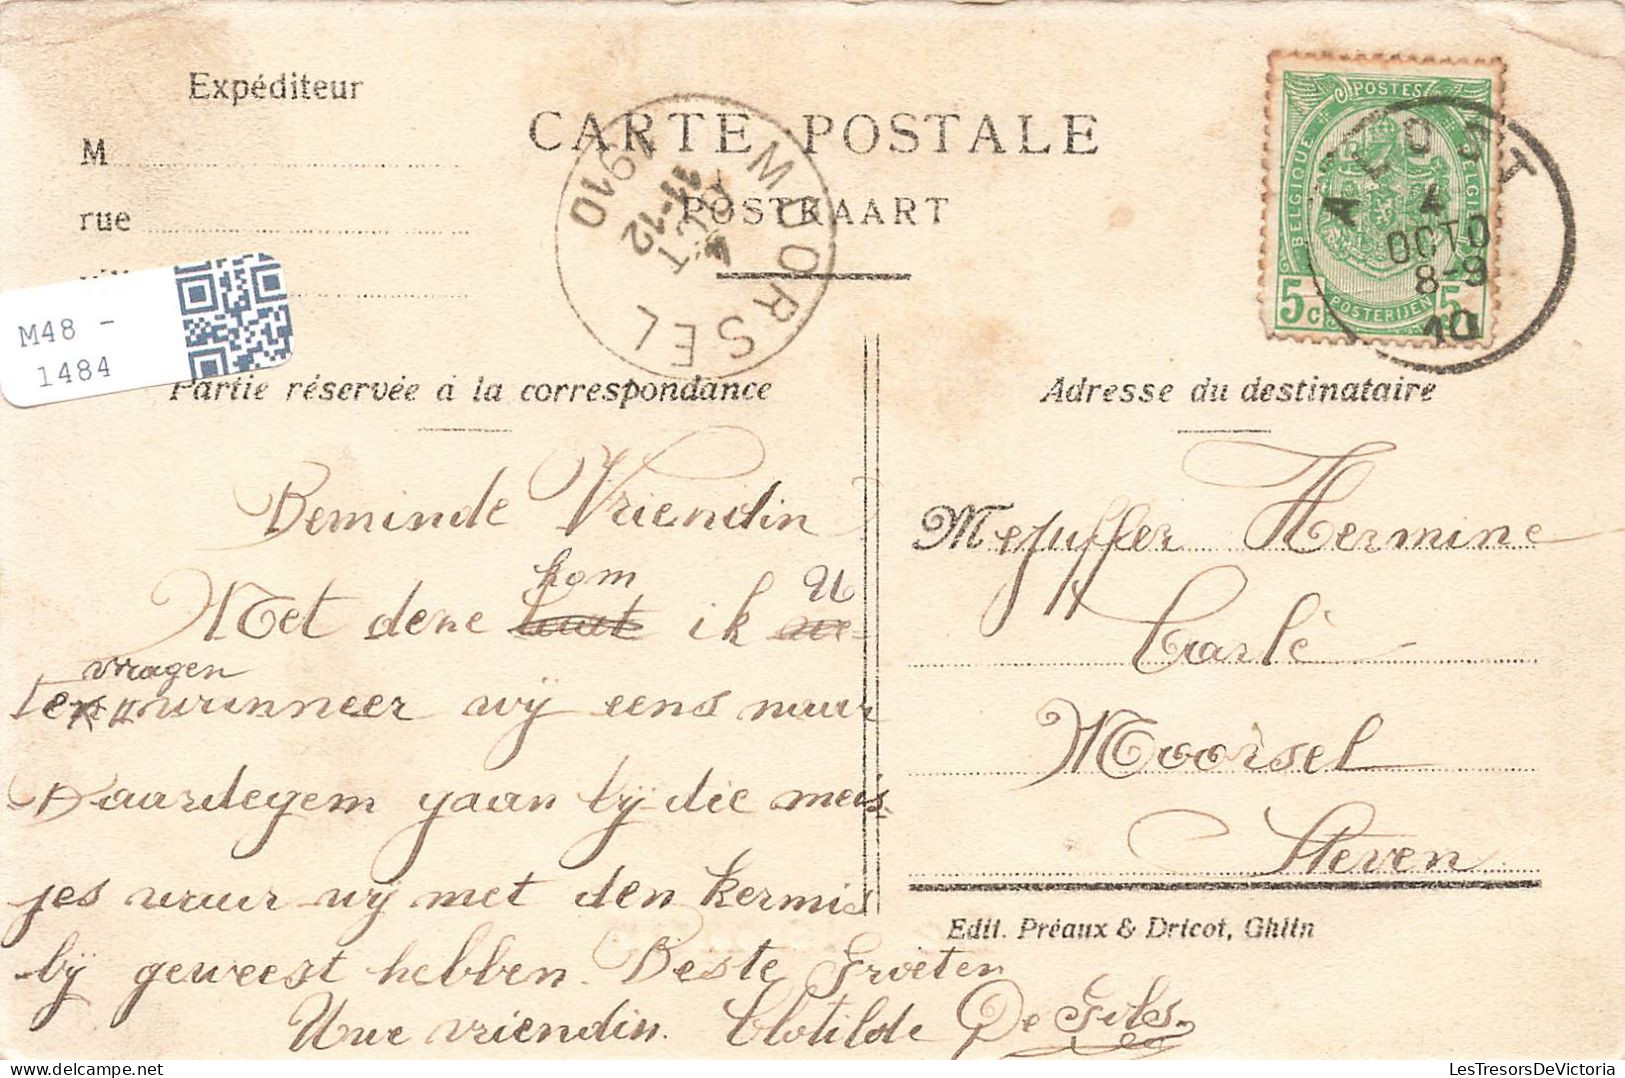 Expéditeur
M
rue
M48 -
1484
CARTE POSTALE
POSTKAART
MOORSEL
4
OCT
11-12
1910
POSTES
BELGIQUE
BELGIE
5c 5c
POSTERIJEN
ALOST
4
OCTO
8-9
10
Partie réservée à la correspondance
Beminde Vriendin
kom U
Met dene ik
vragen
wanneer wij eens naar
Daardegem gaan bij die meis
jes waar wij met den kermis
bij geweest hebben. Beste Groeten
Uwe vriendin. Clotilde De Gols.
Adresse du destinataire
Mejuffer Hermine
Carlé
Moorsel
Steven
Edit. Préaux & Dricot, Ghlin
LesTresorsDeVictoria